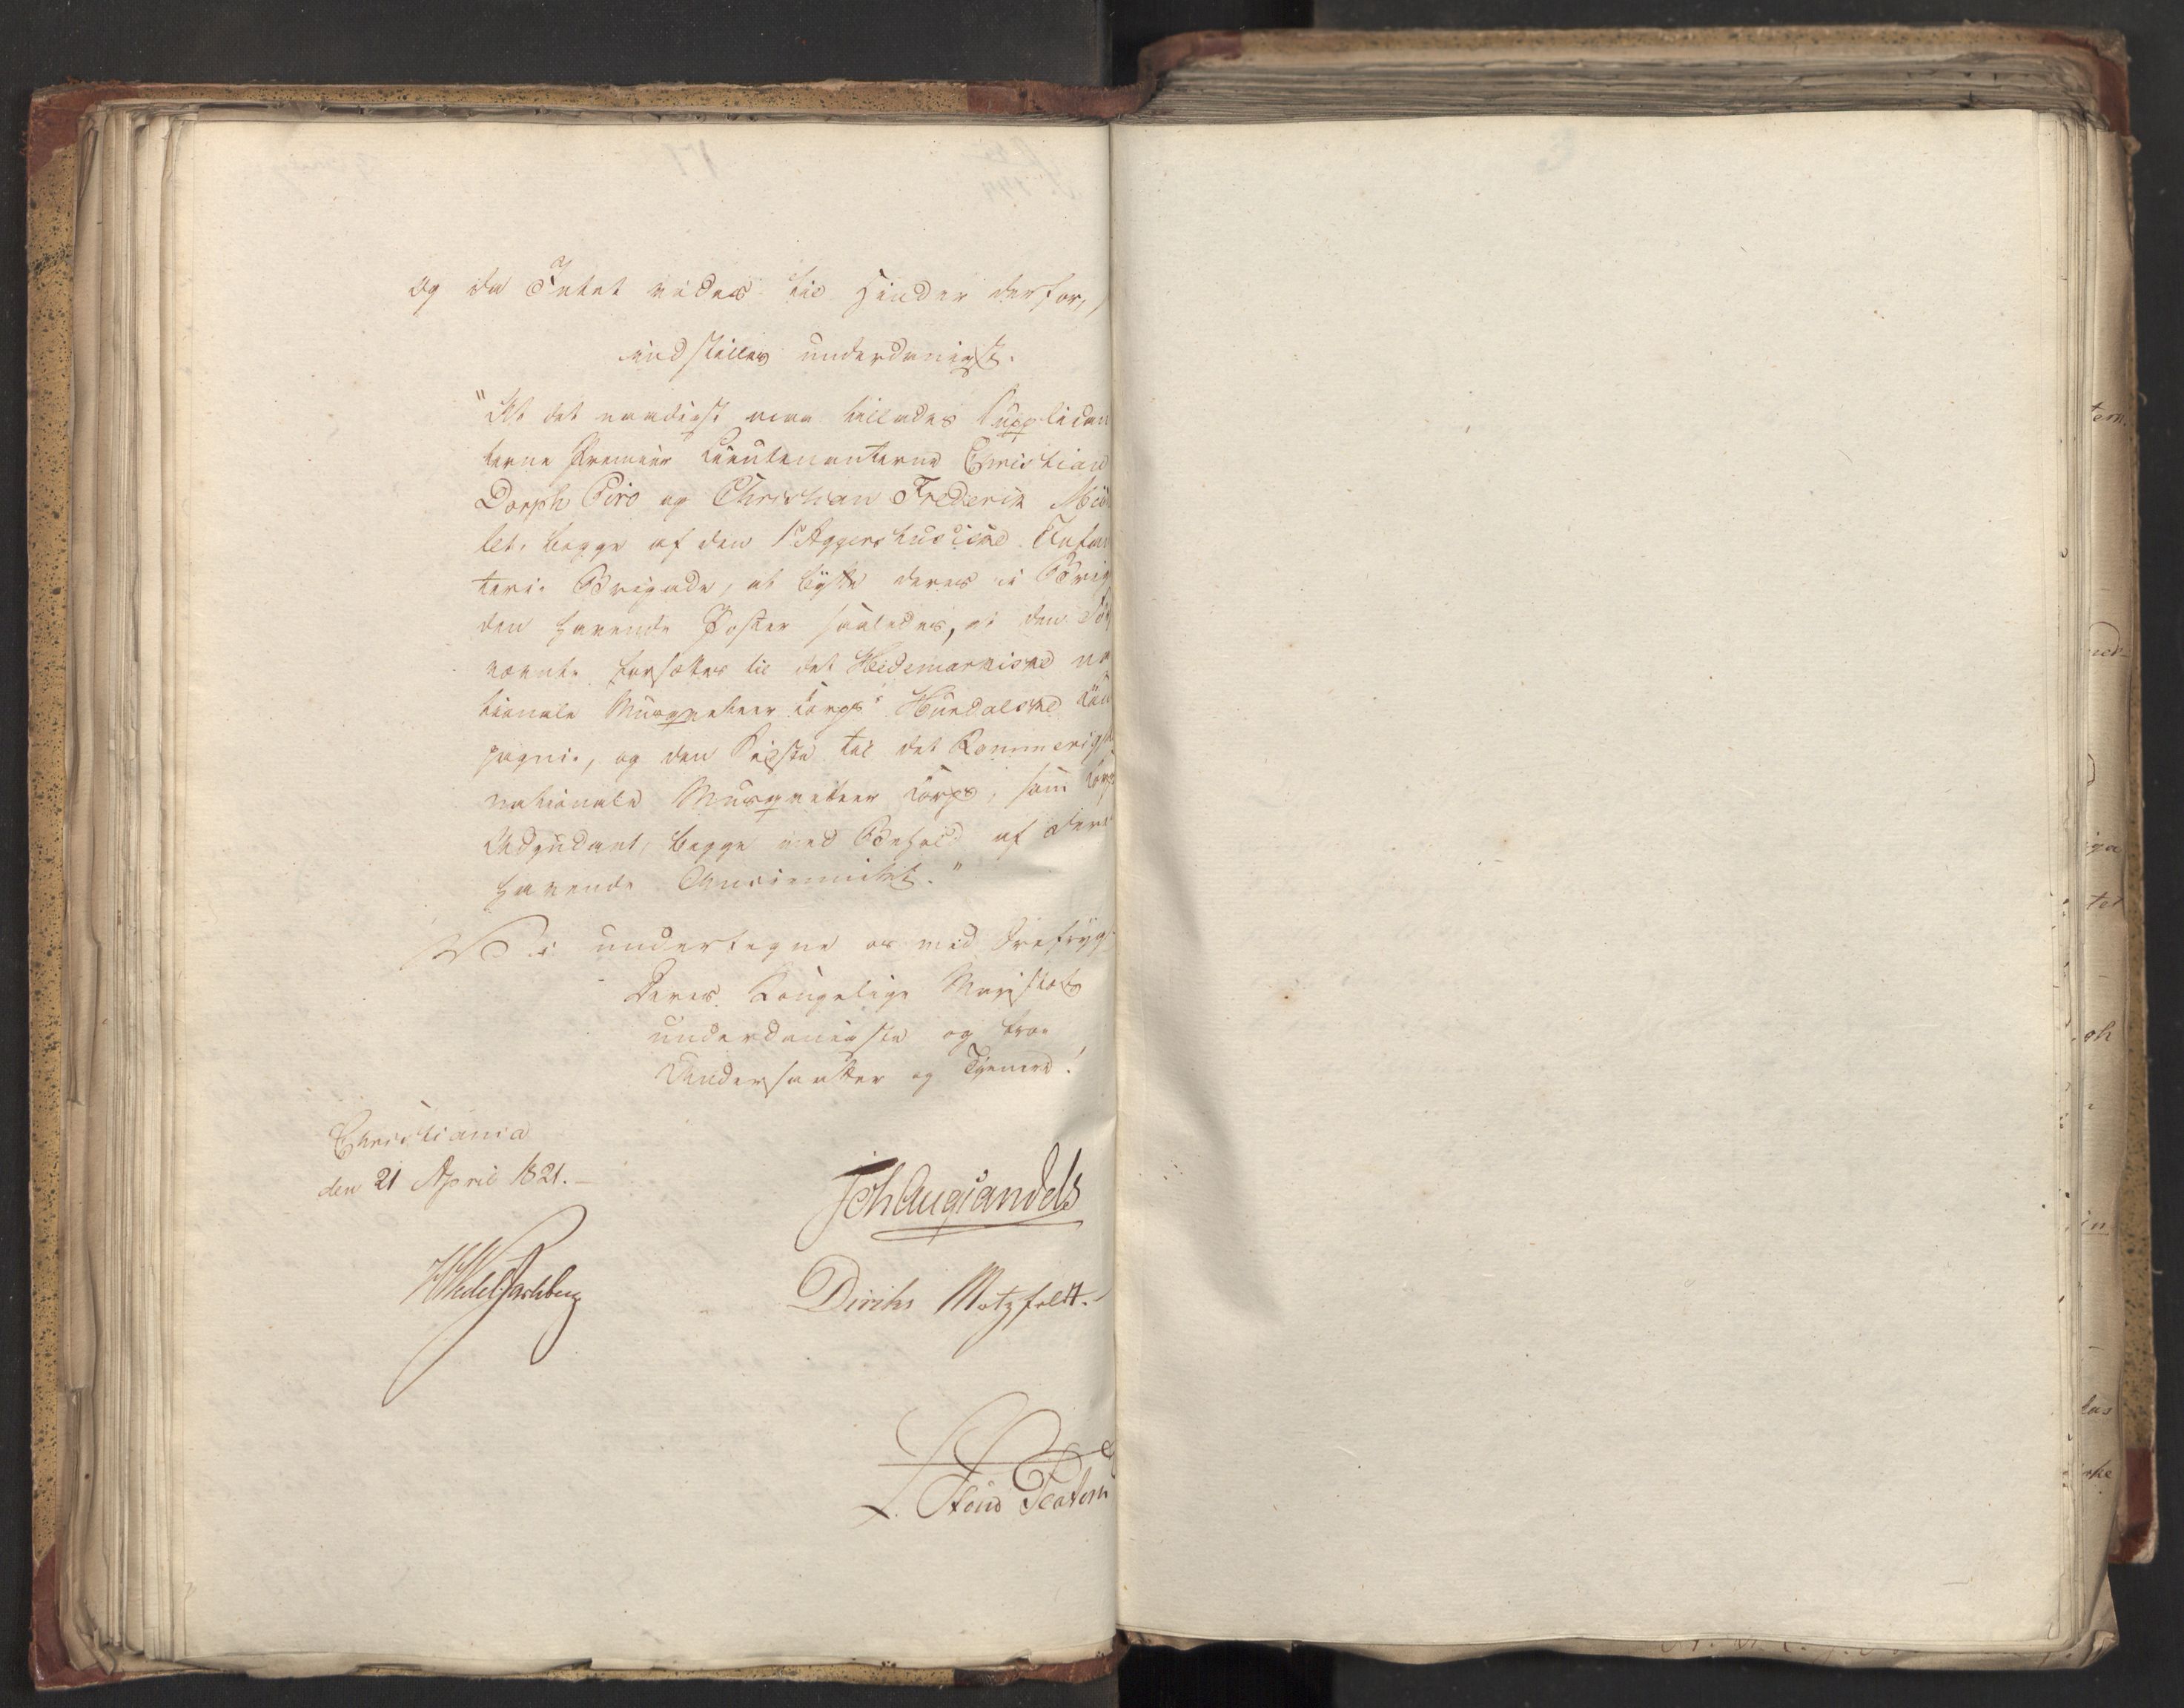 og da Intet vides til Hinder derfor,
indstilles underdanigst:
"At det naadigst maa tillades Supplican
terne Premier Lieutenanterne Christian
Dorph Piro og Christian Frederik
let, begge af den 1ste Aggershusiske Infan
teri Brigade, at bytte deres i Brig
den havende Poster saaledes, at den Før
nævnte forsættes til det Hedemarkiske na
tionale Musqueteer Corps' Hurdalske Com
pagnie, og den Sidste til det Rommerigske
nationale Musqueteer Corps, som Corps
Adjudant, begge med Behold af deres
havende Anciennitet."
Vi undertegne os med Ærefrygt
Deres Kongelige Majestæts
underdanigste og troe
Undersaatter og Tjenere!
Christiania
den 21 April 1821.
Joh Aug Sandels
HWedel Jarlsberg
Diriks Motzfeldt.
L. Stoud Platou
tem.
iga
tet
oh
in
las
rke